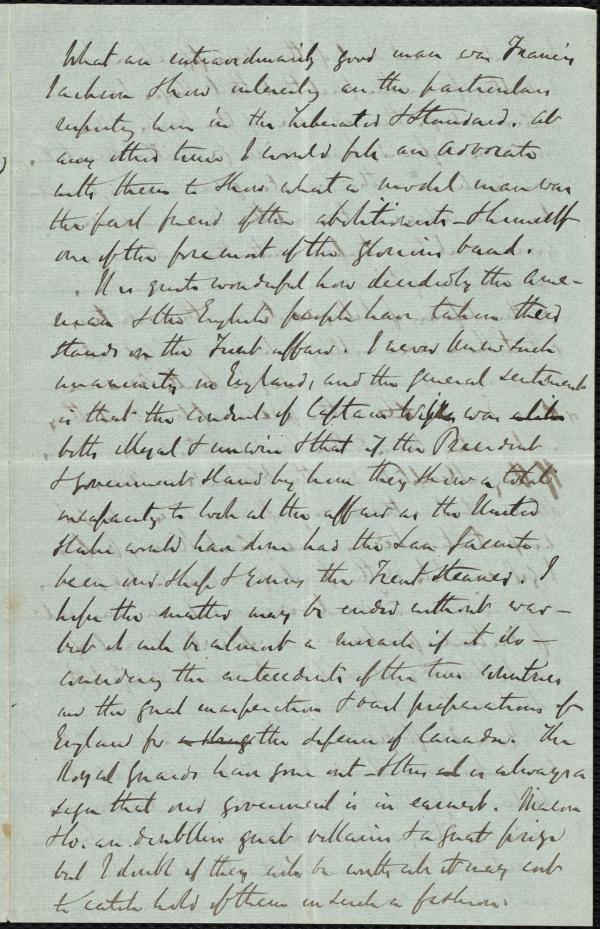 What an extraordinarily good man was Francis
Jackson & how interesting are the particulars
respecting him in the Liberator & Standard. At
any other time I would fill an Advocate
with them to show what a model man was
the fast friend of the abolitionists – & himself
one of the foremost of the glorious band.
It is quite wonderful how decidedly the Ame-
rican & the English people have taken their
stands on the Trent affair. I never knew such
unanimity in England, and the general sentiment
is that the conduct of Captain Wilkes was
both illegal & unwise & that if the President
& government stand by him they show a total
incapacity to look at the affair as the United
States would have done had the San Jacinto
been our ship & ours the Trent Steamer. I
hope the matter may be ended without war –
but it will be almost a miracle if it do –
considering the antecedents of the two countries
and the great exasperation & vast preparations of
England for the defence of Canada. The
Royal Guards have gone out – & this is always a
sign that our government is in earnest. Mason
& Co. are doubtless great villains & a great prize
but I doubt if they will be worth all it may cost
to catch hold of them in such a fashion.